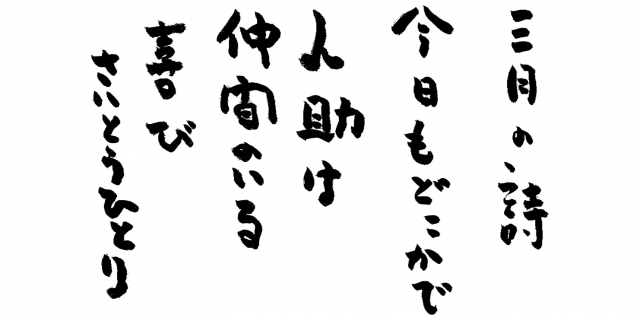 三月の詩
今日もどこかで
人助け
仲間のいる
喜び
さいとうひとり